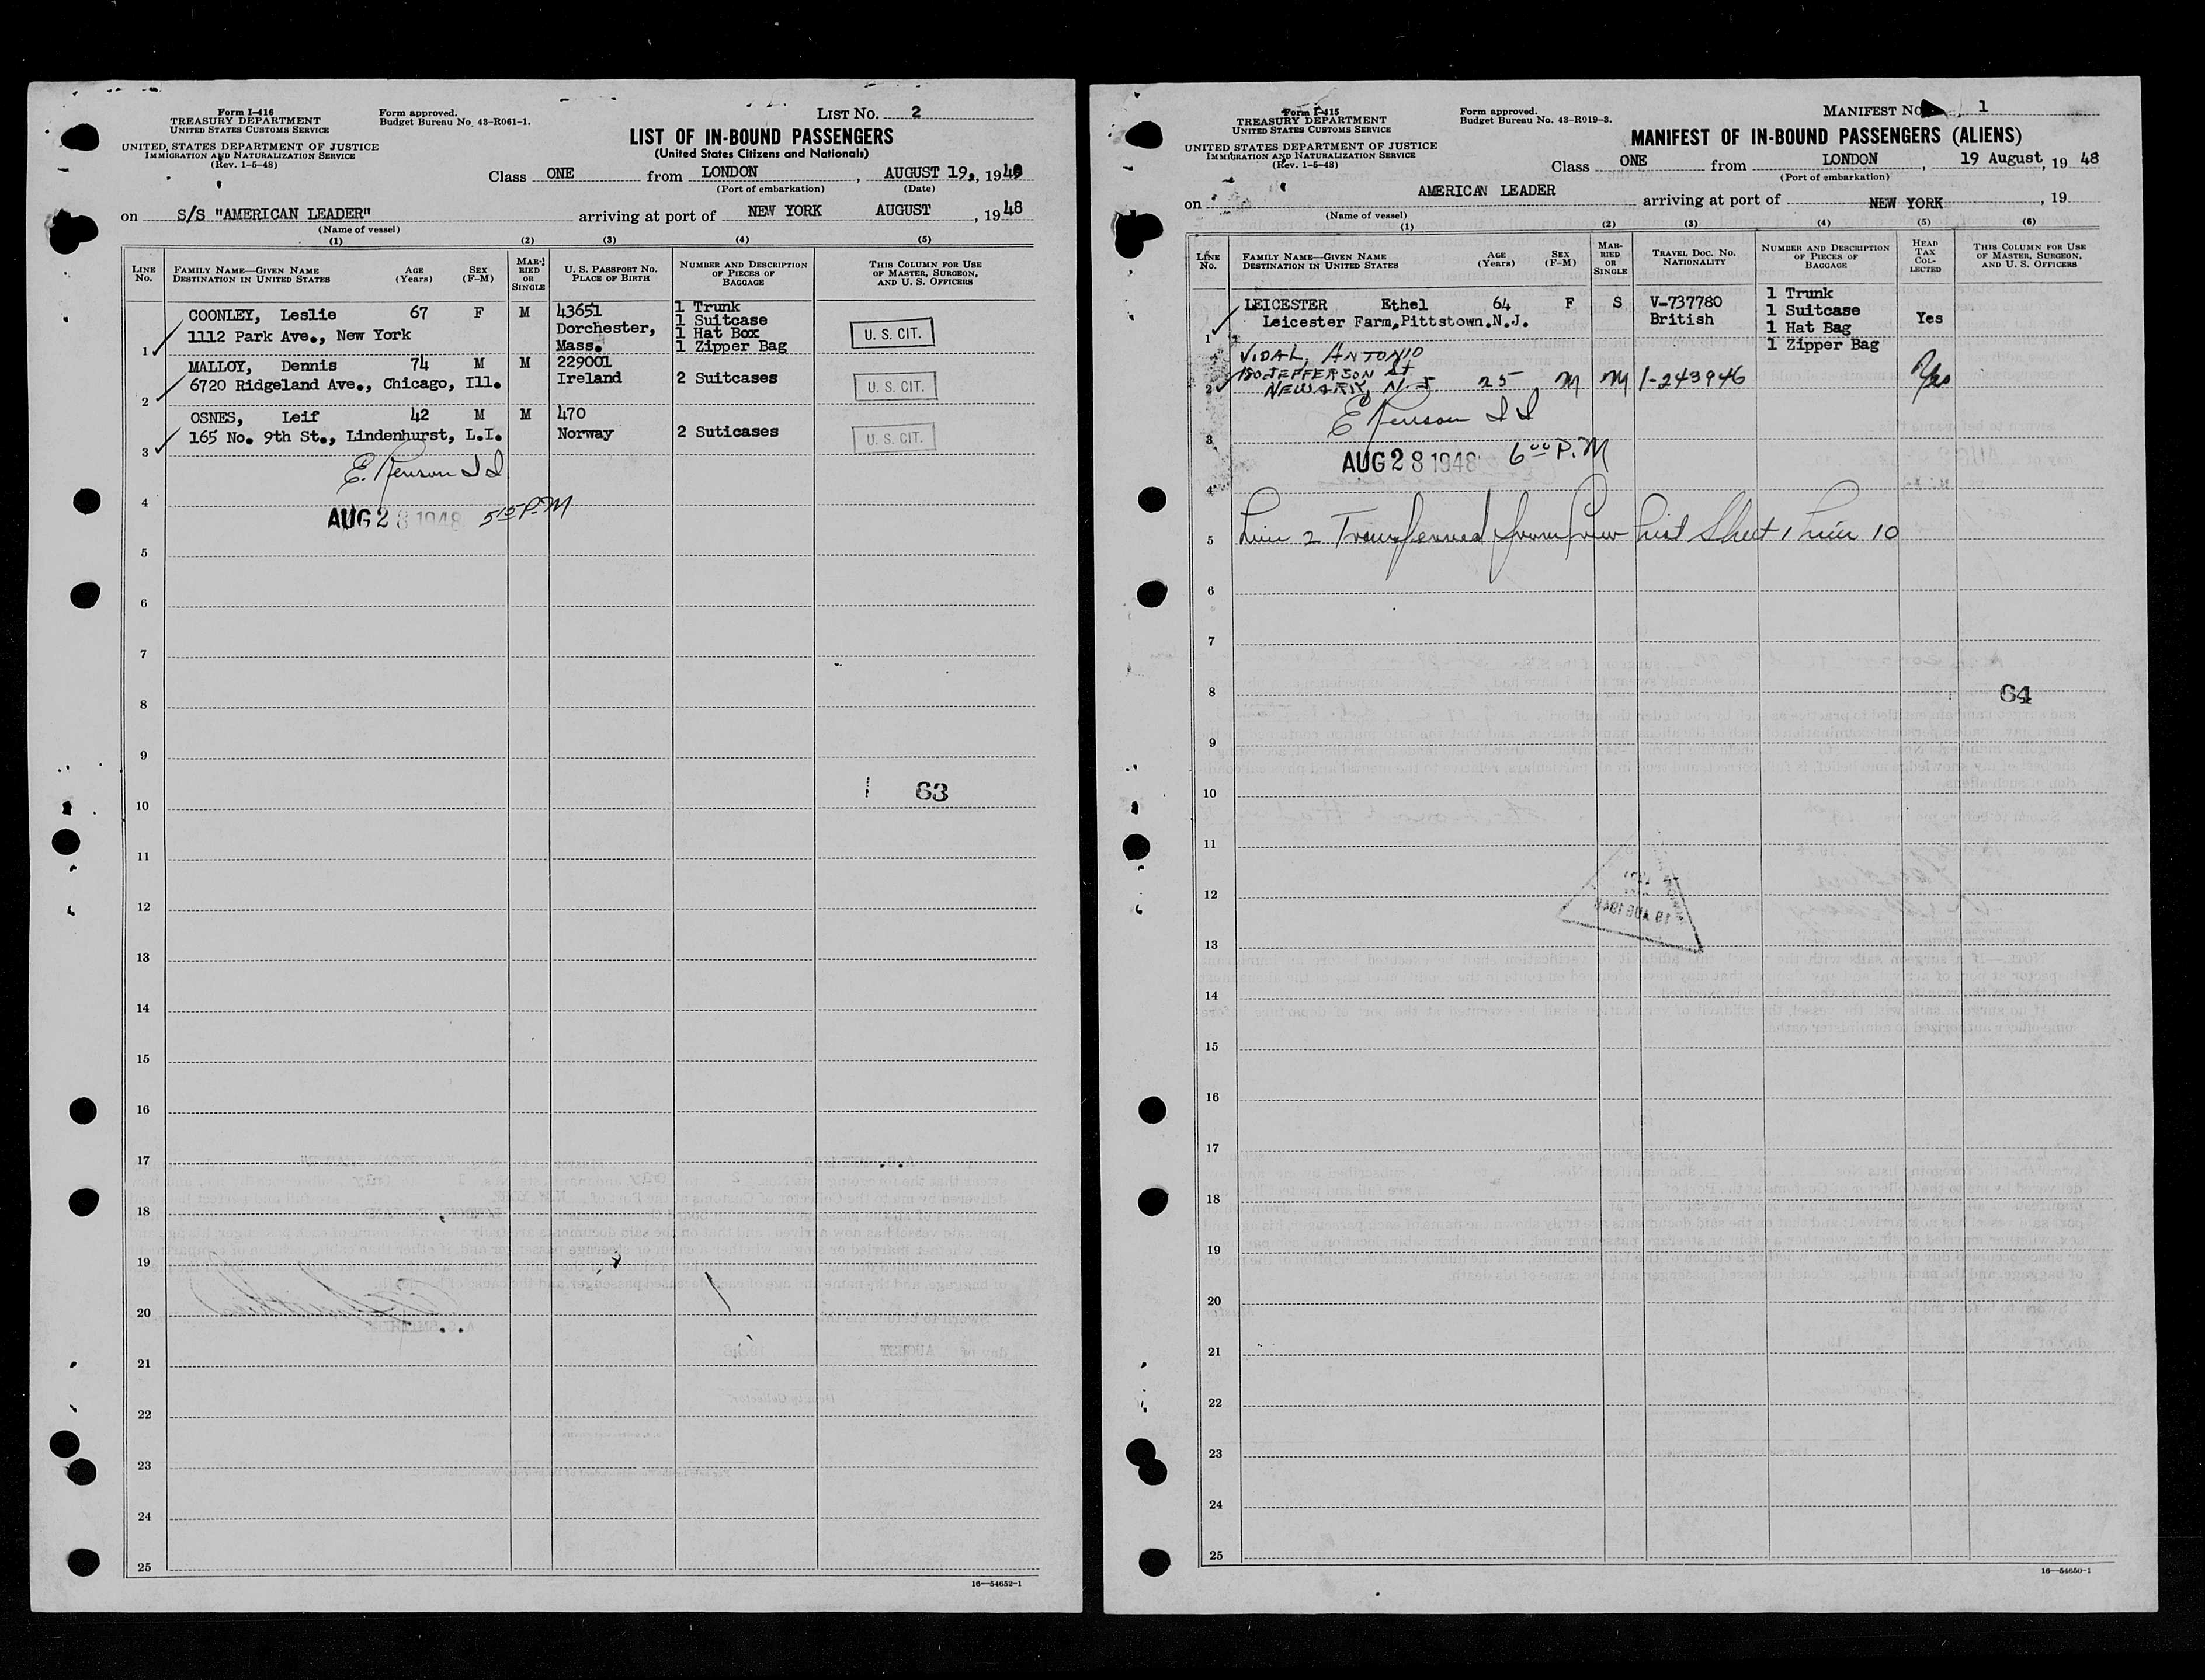 Form I-416
TREASURY DEPARTMENT
UNITED STATES CUSTOMS SERVICE
UNITED STATES DEPARTMENT OF JUSTICE
IMMIGRATION AND NATURALIZATION SERVICE
(Rev. 1-5-48)
Form approved.
Budget Bureau No. 43-R061-1.
LIST NO. 2
LIST OF IN-BOUND PASSENGERS
(United States Citizens and Nationals)
Class ONE from LONDON, AUGUST 19, 1948
(Port of embarkation) (Date)
on S/S "AMERICAN LEADER" arriving at port of NEW YORK AUGUST, 1948
(Name of vessel)
(1) (2) (3) (4) (5)
LINE No. FAMILY NAME—GIVEN NAME DESTINATION IN UNITED STATES AGE (Years) SEX (F-M) MARRIED OR SINGLE U. S. PASSPORT NO. PLACE OF BIRTH NUMBER AND DESCRIPTION OF PIECES OF BAGGAGE THIS COLUMN FOR USE OF MASTER, SURGEON, AND U. S. OFFICERS
COONLEY, Leslie 67 F M 43651 1 Trunk
1112 Park Ave., New York Dorchester, 1 Suitcase
1 Mass. 1 Hat Box U. S. CIT.
1 Zipper Bag
MALLOY, Dennis 74 M M 229001
2 6720 Ridgeland Ave., Chicago, Ill. Ireland 2 Suitcases U. S. CIT.
OSNES, Leif 42 M M 470
3 165 No. 9th St., Lindenhurst, L.I. Norway 2 Suticases U. S. CIT.
4 AUG 28 1948 5 15 P.M
5
6
7
8
9
10 63
11
12
13
14
15
16
17
18
19
20
21
22
23
24
25
16—54652-1
Form I-415
TREASURY DEPARTMENT
UNITED STATES CUSTOMS SERVICE
UNITED STATES DEPARTMENT OF JUSTICE
IMMIGRATION AND NATURALIZATION SERVICE
(Rev. 1-5-48)
Form approved.
Budget Bureau No. 43-R019-3.
MANIFEST NO. 1
MANIFEST OF IN-BOUND PASSENGERS (ALIENS)
Class ONE from LONDON, 19 August, 1948
(Port of embarkation)
on AMERICAN LEADER arriving at port of NEW YORK, 19
(Name of vessel)
(1) (2) (3) (4) (5) (6)
LINE No. FAMILY NAME—GIVEN NAME DESTINATION IN UNITED STATES AGE (Years) SEX (F-M) MARRIED OR SINGLE TRAVEL DOC. NO. NATIONALITY NUMBER AND DESCRIPTION OF PIECES OF BAGGAGE HEAD TAX COLLECTED THIS COLUMN FOR USE OF MASTER, SURGEON, AND U. S. OFFICERS
LEICESTER Ethel 64 F S V-737780 1 Trunk
Leicester Farm,Pittstown.N.J. British 1 Suitcase Yes
1 1 Hat Bag
1 Zipper Bag
VIDAL, ANTONIO
JEFFERSON St
2 NEWARK, N.J 25 M M 1-243946 Yes
3
AUG 28 1948 6 00 P.M
4
5 Line 2 Transferred from Crew List Sheet 1 Line 10
6
7
8 64
9
10
11
12
19 AUG 1948
13
14
15
16
17
18
19
20
21
22
23
24
25
16—54650-1